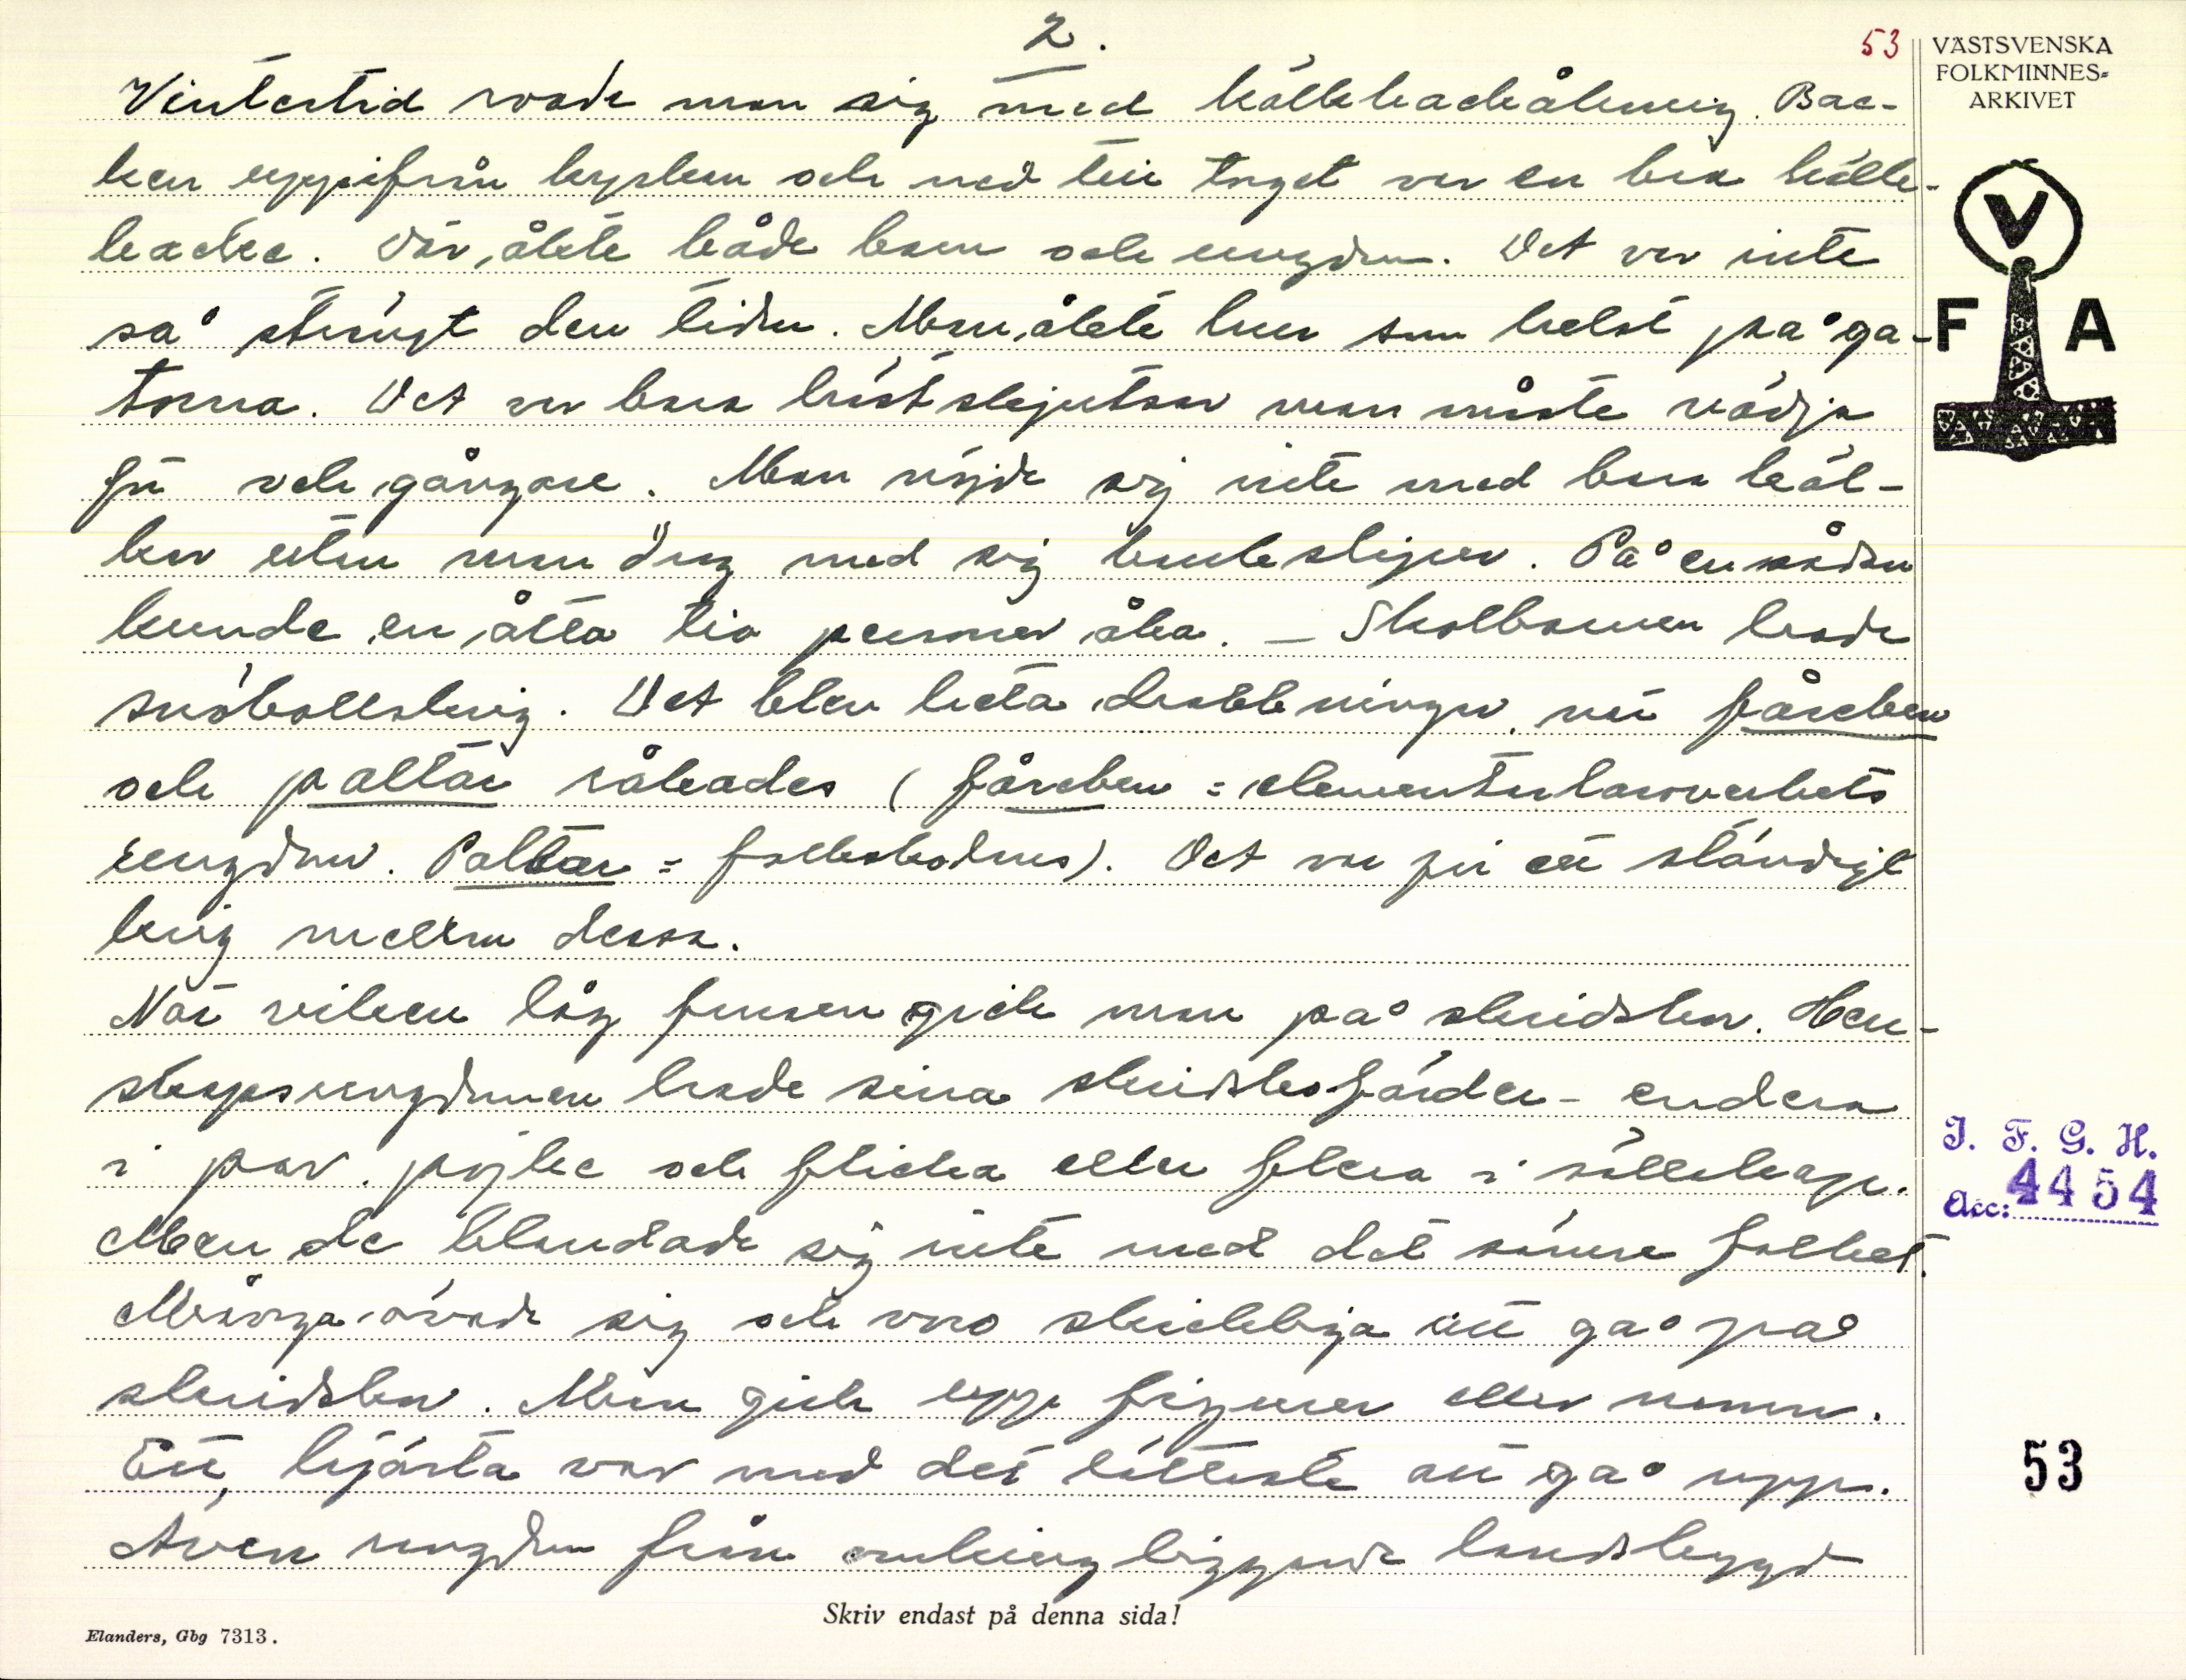 2.
53
VÄSTSVENSKA
FOLKMINNES=
ARKIVET
V
F A
Vintertid roade man sig med kälkbackåkning. Bac-
ken uppifrån kyrkan och ned till torget var en bra kälk-
backe. Där åkte både barn och ungdom. Det var inte
så strängt den tiden. Man åkte hur som helst på ga-
torna. Det var bara hästskjutsar man måste vädja
för och gångare. Man nöjde sig inte med bara käl-
kar utan man drog med sig kälkslejpor. På en sådan
kunde en åtta tio personer åka. – Skolbarnen hade
snöbollskrig. Det blev heta drabbningar när fåreben
och paltar råkades (fåreben = elementarläroverkets
ungdom. Paltar = folkskolans). Det var för ett ständigt
krig mellan dessa.
När viken låg frusen gick man på skridskor. Her-
skapsungdomen hade sina skridskofärder – endera
i par, pojke och flicka eller flera i sällskap.
Men de blandade sig inte med det sämre folket.
Många övade sig och voro skickliga att gå på
skridskor. Man gick upp figurer eller namn.
Ett hjärta var med det lättaste att gå upp.
Även ungdom från omkringliggande landsbygd
J. F. G. H.
Acc: 4454
53
Skriv endast på denna sida!
Elanders, Gbg 7313.